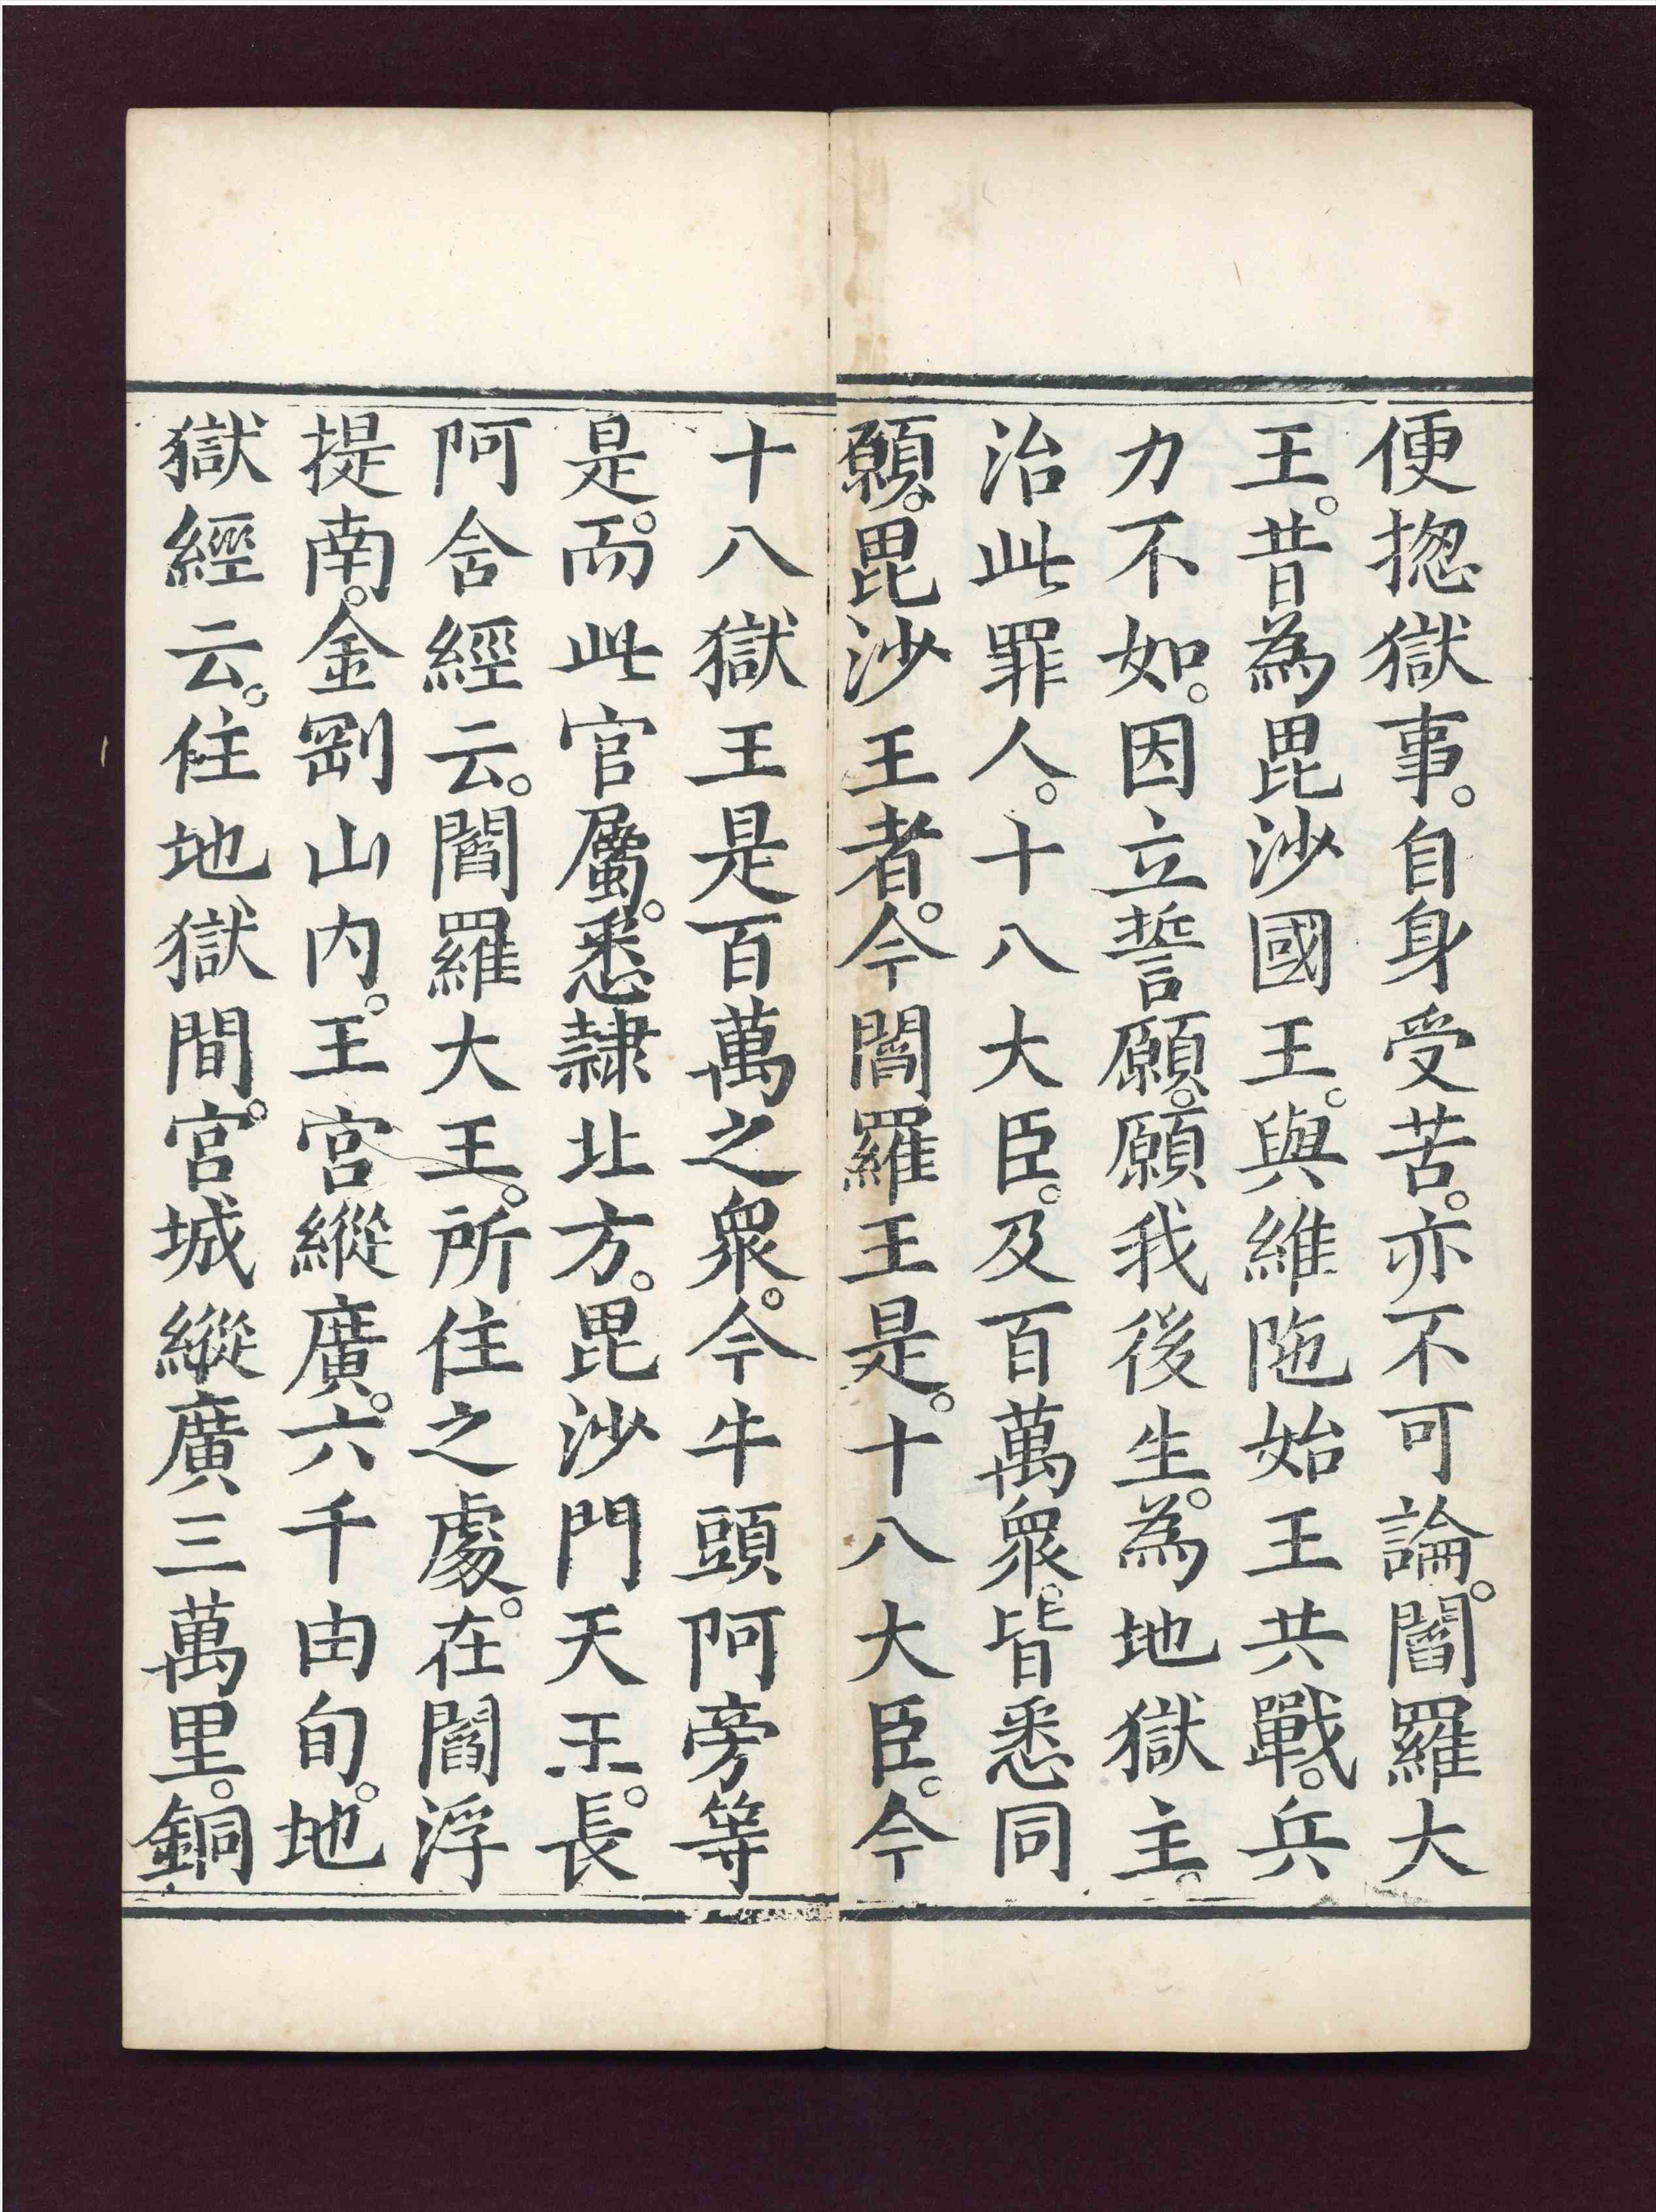 便揔獄事。自身受苦。亦不可論。閻羅大
王。昔為毘沙國王。與維陁始王共戰。兵
力不如。因立誓願。願我後生。為地獄主。
治此罪人。十八大臣。及百萬眾。皆悉同
願。毘沙王者。今閻羅王是。十八大臣。今
十八獄王是百萬之眾。今牛頭阿旁等
是。而此官屬。悉隷北方。毘沙門天王。長
阿含經云。閻羅大王。所住之處。在閻浮
提南。金剛山內。王宮縱廣。六千由旬。地
獄經云。住地獄間。宮城縱廣三萬里。銅